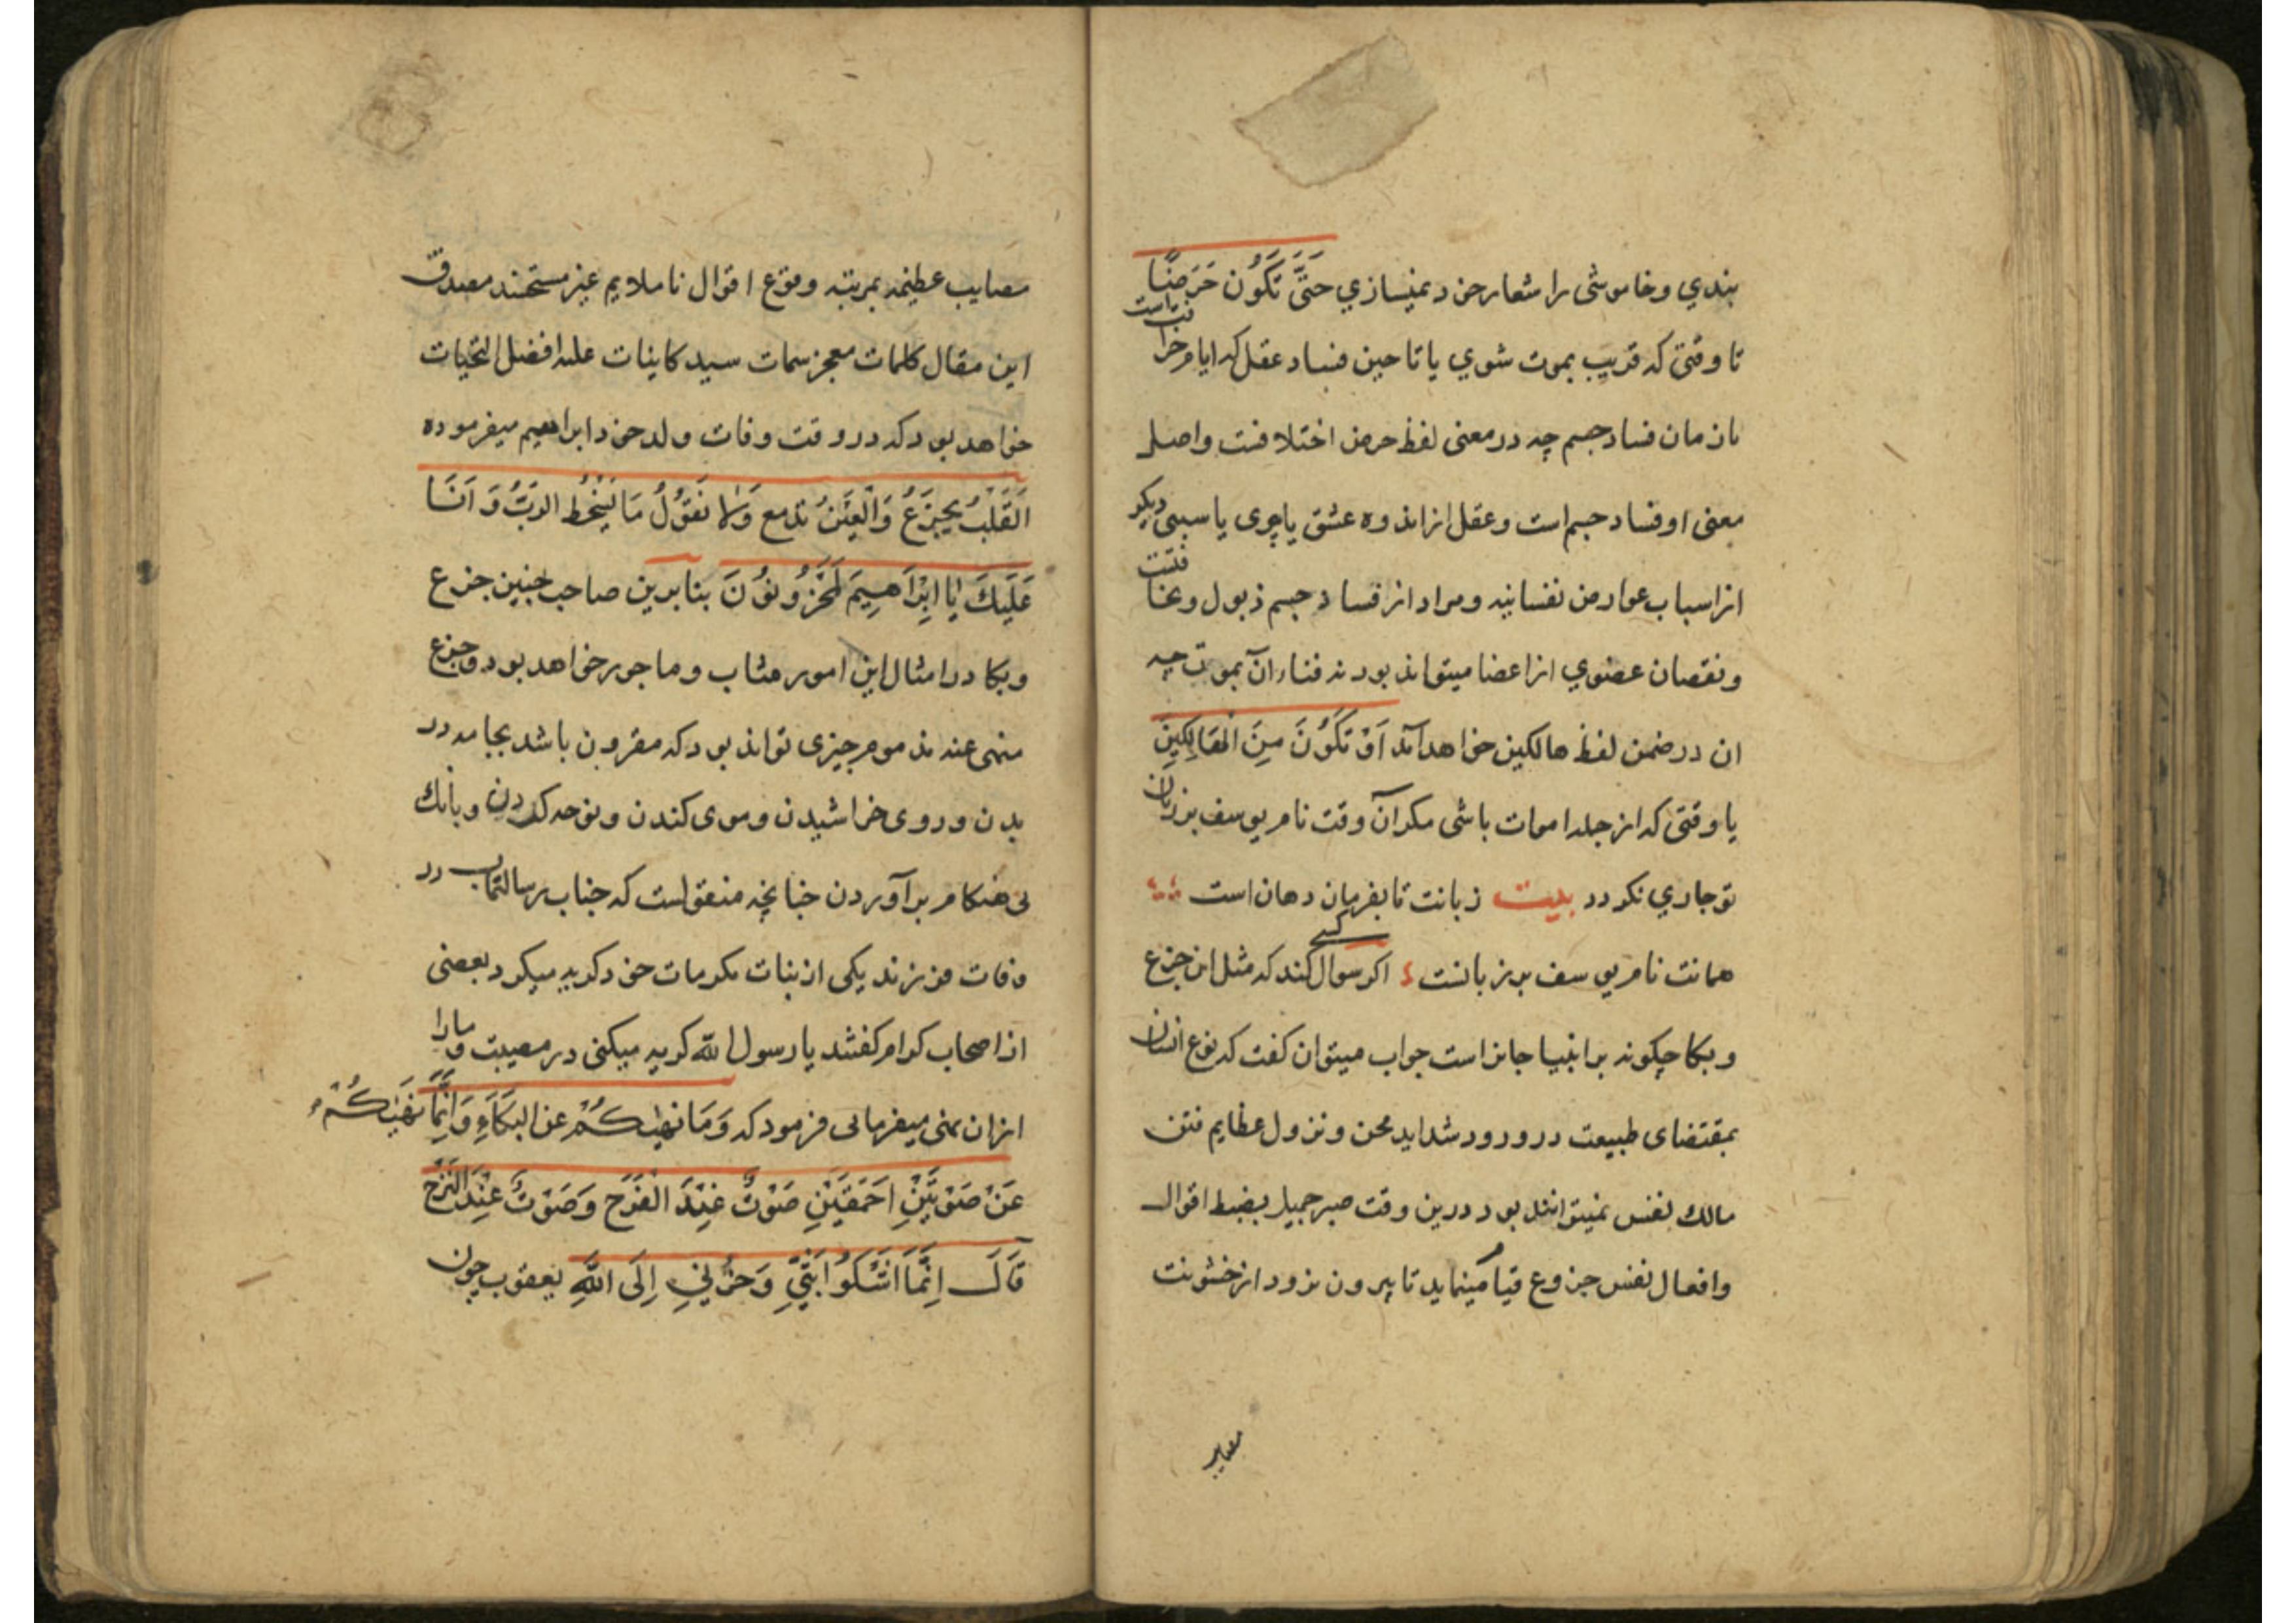 بندي وخاموشی را شعار خود نمیسازي حَتَّى تَكُونَ حَرَضًا
تا وقتی که قریب بموت شوي یا تا حین فساد عقل که ایام خرا فت است
یا زمان فساد جسم چه در معنی لفظ حرض اختلافست واصل
معنی او فساد جسم است وعقل از اندوه عشق یا پیری یا سببی دیکر
از اسباب عوارض نفسانیه ومراد از فساد جسم ذبول و
ونقصان عضوي از اعضا میتواند بود نه فناء آن بموت چه
ان در ضمن لفظ هالکین خواهد آمد اَوْ تَكُونَ مِنَ الْهَالِكِينَ
یا وقتی که از جمله اموات باشی مکر آن وقت نام یوسف بر زبان
تو جاري نکردد بیت زبانت تا بفرمان دهان است
همانت نام یوسف بر زبانست اکر کسی سوال کند که مثل این جزع
وبکا چکونه بر انبیا جایز است جواب میتوان کفت که نوع انسان
بمقتضای طبیعت در ورود شداید محن ونزول عظایم فتن
مالك نفس نمیتواند بود درین وقت صبر جمیل بضبط اقوال
وافعال نفس جزوع قیام مینماید تا بیرون نرود از خشونت
مصایب
مصایب عظیمه بمرتبه وقوع اقوال نا ملایم غیر مستحسنه مصدق
این مقال کلمات معجز سمات سید کاینات علیه افضل التحیات
خواهد بود که در وقت وفات ولد خود ابراهیم میفرموده
اَلْقَلْبُ يَجْزَعُ وَالْعَيْنُ تدمع وَلَا نَقُولُ مَا يُسْخِطُ الرَّبَّ وَ اَنَا
عَلَيْكَ يَا اِبْرَاهِيمَ لَمَحْزُونُونَ بنابرین صاحب چنین جزع
وبکا در امثال این امور مثاب وماجور خواهد بود وجزع
منهی عنه مذموم چیزی تواند بود که مقرون باشد بجامه در
یدن وروی خراشیدن وموی کندن ونوحه کردن وبانك
بی هنکام برآوردن چنانچه منقول است که جناب رسالتماب در
وفات فرزند یکی از بنات مکرمات خود کریه میکرد بعضی
از اصحاب کرام کفتند یا رسول الله کریه میکنی در مصیبت وما را
از ان نهی میفرمایی فرمود که وَمَا نَهَيْتُكُمْ عن البكَاءِ وَاِنَّمَا نَهَيْتُكُمْ
عَنْ صَوْتَيْنِ اَحْمَقَيْنِ صَوْتٌ عِنْدَ الْفَرَحِ وَصَوْتٌ عِنْدَ التَّرَحِ
قَالَ اِنَّمَا اَشْكُو ا بَثِّي وَحُزْنِي اِلَى اللّٰهِ یعقوب چون